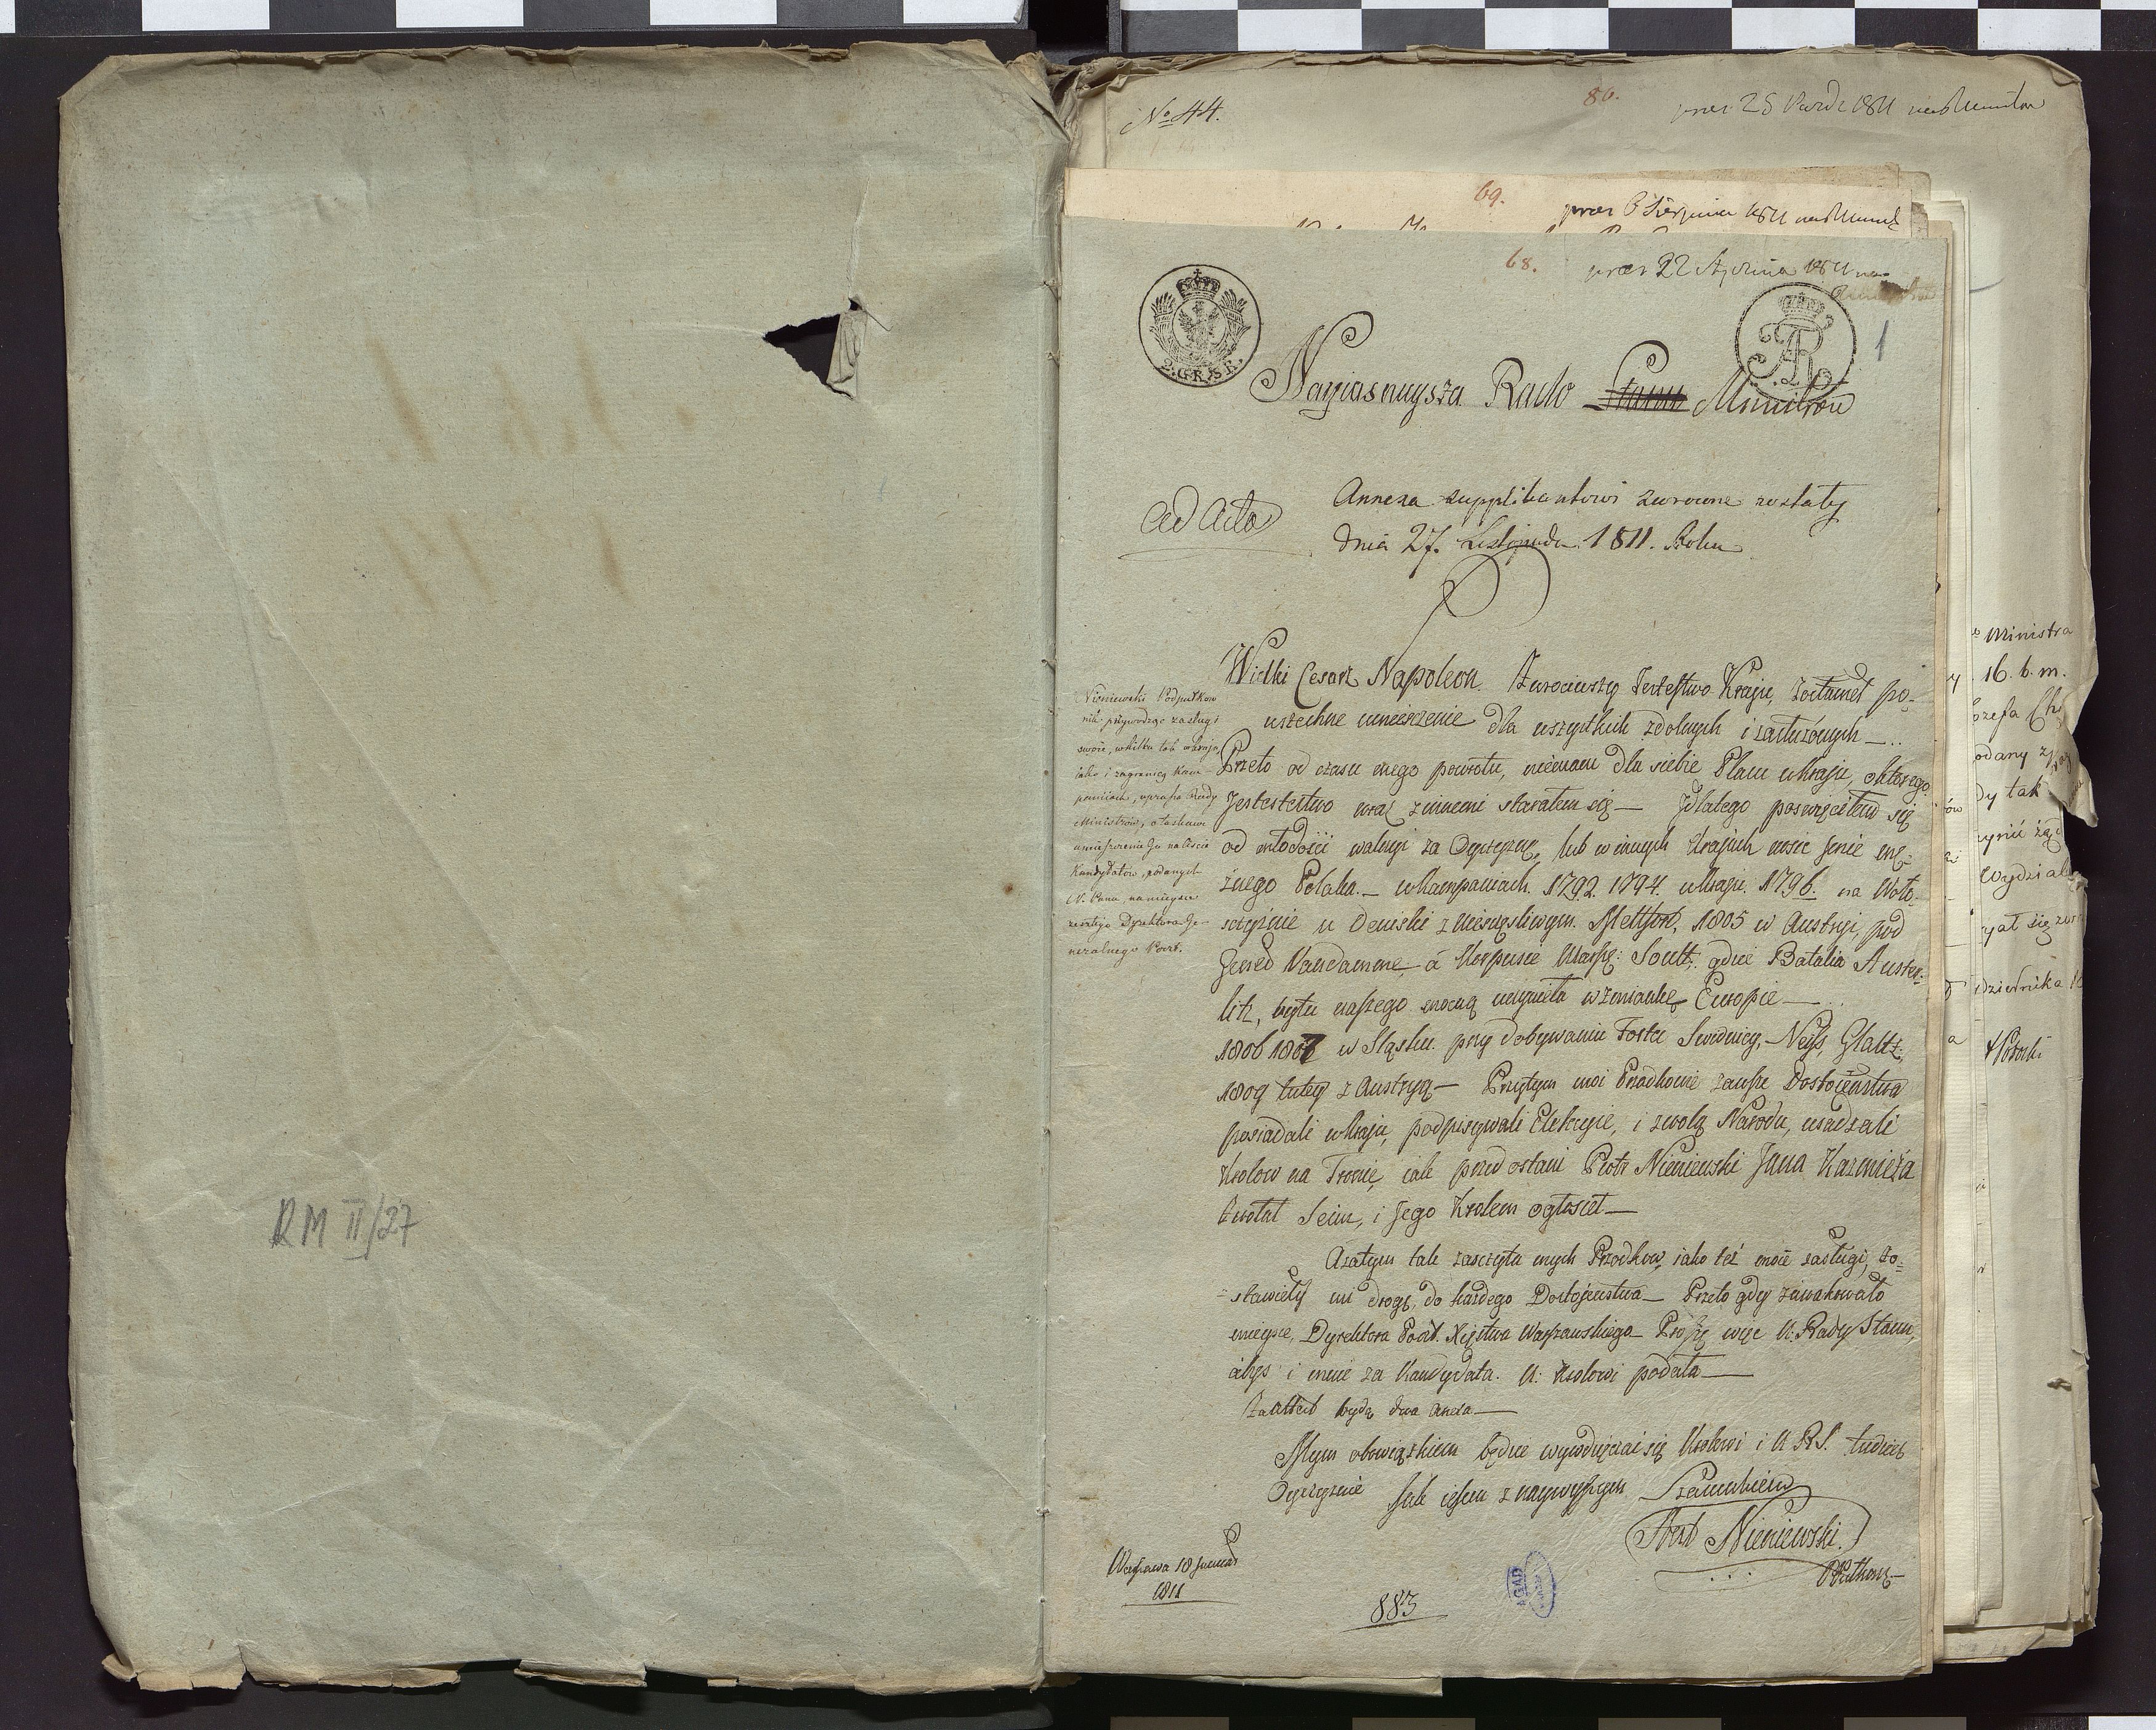 RM II/27
No 44.
86.
prez 25 1811
69.
prez 6 Sierpnia 1811
68.
prez 22 Stycznia 1811 na
1
2.GR.SR.
Nayiasnieysza Rado Stanu Ministrów
Ad Acta
Annexa supplikantowi zwrocone zostały
dnia 27. Listopada 1811. Roku
Nieniewski Podpułkow
nik przywodząc zasługi
swoie, w kilku tak w kraju,
iako i zagranicą kam-
paniach, uprasza Rady
Ministrów, o łaskawe
umieszczenie Go na liście
Kandydatów, podanych
N. Panu, na mieysce
zeszłego Dyrektora Ge-
neralnego Poczt.
Wielki Cesarz Napoleon. Zwrociwszy Jestestwo Kraju, zostawieł po-
wszechne umieszczenie dla wszystkich zdolnych i zasłużonych —
Przeto od czasu mego powrotu, nieemam dla siebie Placu w kraju, o którego
Jestestwo wraz z innemi starałem się — Jdlatego poswięciłem się
od młodości walcząc za Oyczyznę, lub w innych Krajach nosic Jmie mę-
żnego Polaka. — w kampaniach. 1792. 1794. w kraju. 1796. na Woło-
szczyźnie u Deniski z nieszczęsliwym. 1805 w Austryi, pod
Jenerd Vandamme à Korpusie Marsz: Soult; gdzie Batalia Auster-
litz, bytu naszego mocną uczynieła wzmiankę Europie —
1806 1807 w Sląsku. przy dobywaniu Fortec Swidnicy, Neyss, Glattz,
1809 tutey z Austryą — Przytym moi Przodkowie zawsze Dostoieństwa
posiadali w kraju, podpisywali Elekcyie, i z wolą Narodu, wsadzali
Krolow na Tronie, iak przed ostani Piotr Nieniewski Jana Kazmieża
Zwołał Seim, i Jego Krolem ogłosieł —
Azatym tak zaszczyta mych Przodkow, iako też moie zasługi, zo=
=stawieły mi drogę, do każdego Dostojenstwa — Przeto gdy zawakowało
mieysce, Dyrektora Poczt. Xięstwa Warszawskiego — Proszę więc N. Rady Stanu,
ábys i mnie za Kandydata. N: Krolowi podała —
Załączeń będą dwa —
Mym obowiązkiem będzie wywdzięczać się Krolowi i N R S. tudzież
Oyczyznie Jak iestem z naywyższym Szacunkiem
Nieniewski.
Pułkow
Warszawa 18 Januar
1811
883
AGAD
Ministra
16. b. m.
ozefa Ch
odany z
dy tak
Wydział
ył się
dziernika